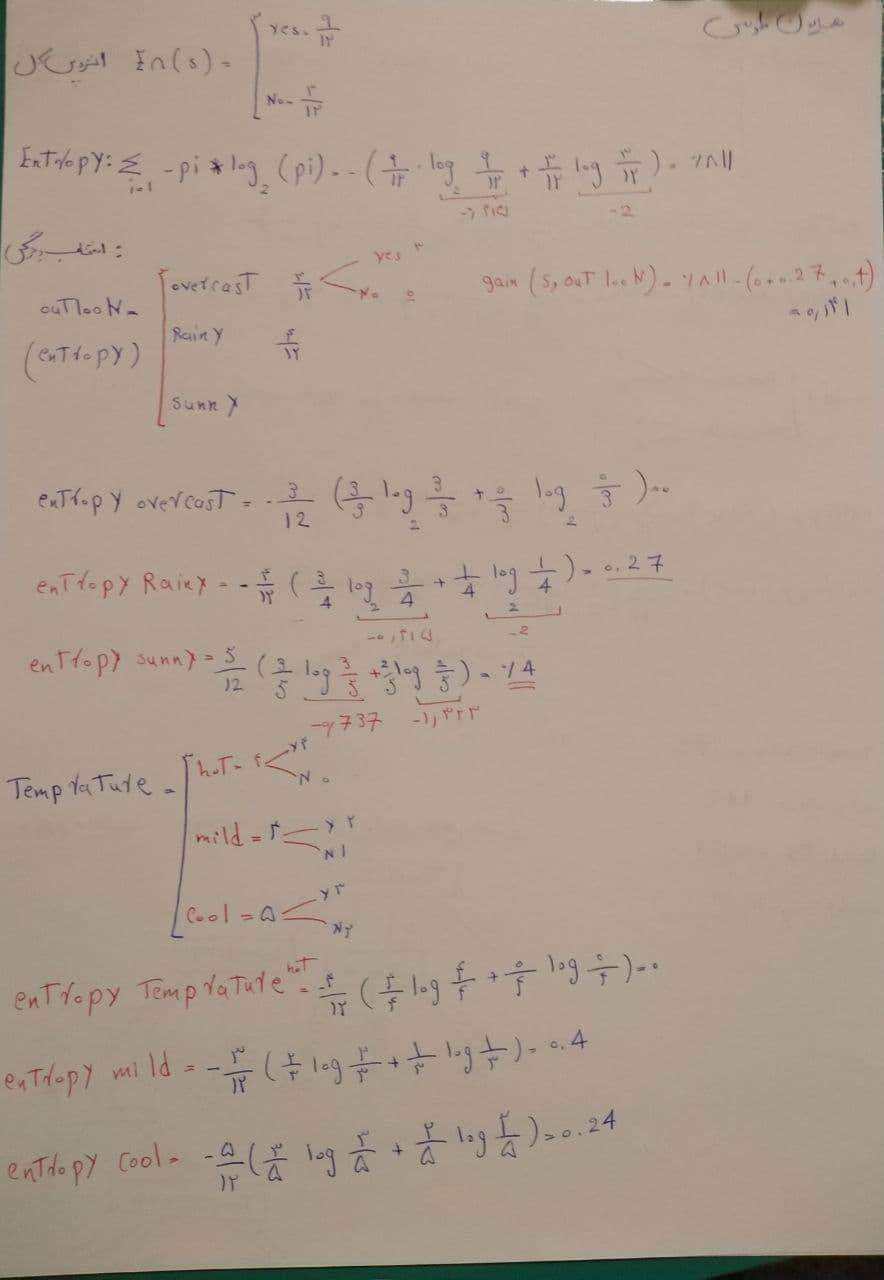 آنتروپی کل En(s) = Yes = ۹/۱۲
No = ۳/۱۲
Entropy: Σ i=1 -pi * log₂ (pi) = -(۹/۱۲ · log₂ ۹/۱۲ + ۳/۱۲ log ۳/۱۲) = ٪۸۱۱
-2
انتخاب ویژگی:
overcast ۳/۱۲ yes ۳
No ۰
gain (s, outlooN) = ٪۸۱۱ - (0+0.27+0,4)
= ۰,۱۴۱
outlooN =
(entropy)
Rainy ۴/۱۲
Sunny
entropy overcast = - 3/12 (3/3 log₂ 3/3 + 0/3 log₂ 0/3) = 0
entropy Rainy = - ۴/۱۲ (3/4 log₂ 3/4 + 1/4 log₂ 1/4) = 0.27
-۰,۴۱۵ -2
entropy sunny = 5/12 (3/5 log 3/5 + 2/5 log 2/5) = ٪4
-۰,737 -۱,۳۲۲
Temprature = hot = ۴ Y ۴
N ۰
mild = ۳ Y ۲
N ۱
Cool = ۵ Y ۳
N ۲
entropy Temprature hot = - ۴/۱۲ (۴/۴ log ۴/۴ + ۰/۴ log ۰/۴) = ۰
entropy mild = - ۳/۱۲ (۲/۳ log ۲/۳ + ۱/۳ log ۱/۳) = 0.4
entropy Cool = - ۵/۱۲ (۳/۵ log ۳/۵ + ۲/۵ log ۲/۵) = 0.24